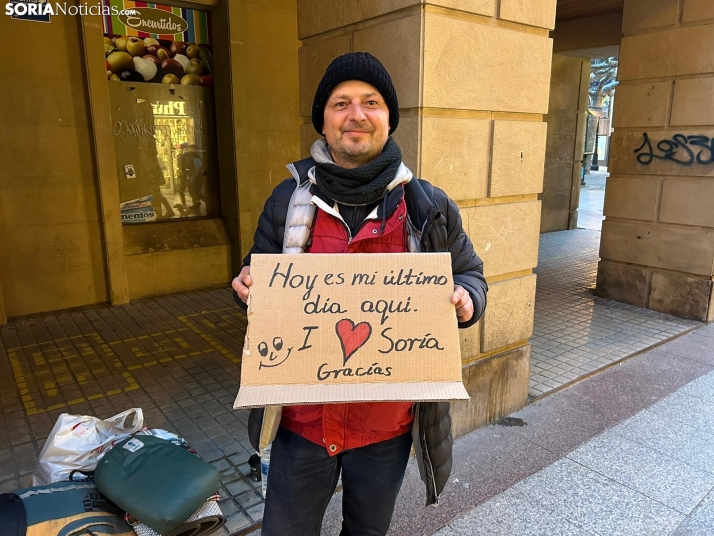 SORIANoticias.com
Encurtidos
Hoy es mi último
día aquí.
I ❤ Soría
Gracías